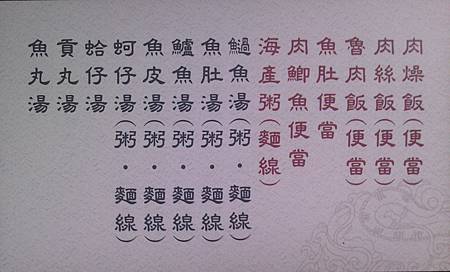 肉燥飯(便當)
肉絲飯(便當)
魯肉飯(便當)
魚肚便當
肉鯽魚便當
海產粥(麵線)
魚湯(粥・麵線)
魚肚湯(粥・麵線)
鱸魚湯(粥・麵線)
魚皮湯(粥・麵線)
蚵仔湯(粥・麵線)
蛤仔湯
貢丸湯
魚丸湯